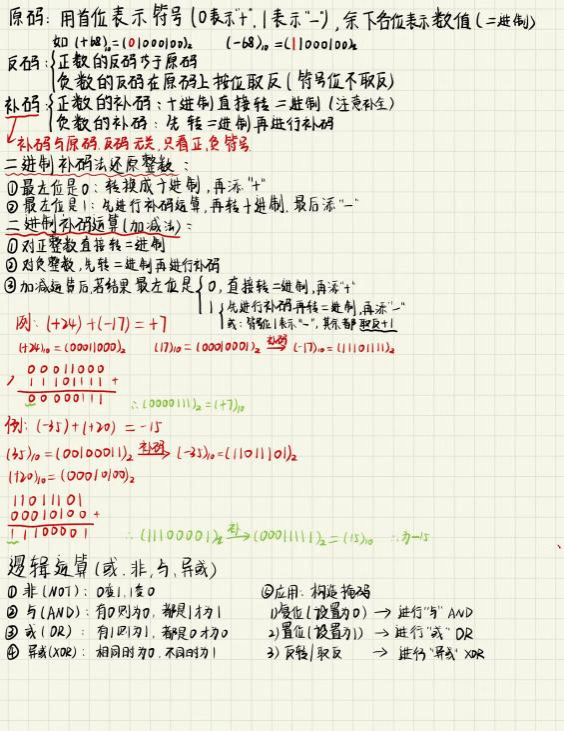 原码：用首位表示符号（0表示"+"，1表示"-"），余下各位表示数值（二进制）
如（+68)₁₀=(01000100)₂ (-68)₁₀=(11000100)₂
反码：{正数的反码等于原码
负数的反码在原码上按位取反（符号位不取反）
补码：{正数的补码：十进制直接转二进制（注意补全）
负数的补码：先转二进制再进行补码
补码与原码.反码无关,只看正,负符号
二进制补码法还原整数：
①最左位是0：转换成十进制,再添"+"
②最左位是1：先进行补码运算,再转十进制.最后添"-"
二进制补码运算（加减法）：
①对正整数直接转二进制
②对负整数,先转二进制再进行补码
③加减运算后,若结果最左位是{0，直接转二进制,再添"+"
1{先进行补码再转二进制,再添"-"
或：符号位1表示"-"，其余都取反+1
例：(+24)+(-17)=+7
(+24)₁₀=(00011000)₂ (17)₁₀=(00010001)₂ 补码→ (-17)₁₀=(11101111)₂
00011000
11101111 +
00000111 ∴(0000111)₂=(+7)₁₀
例：(-35)+(+20)=-15
(35)₁₀=(00100011)₂ 补码→ (-35)₁₀=(11011101)₂
(+20)₁₀=(00010100)₂
11011101
00010100 +
11100001 ∴(11100001)₂ 补→ (00011111)₂=(15)₁₀ ∴为-15
逻辑运算（或.非,与,异或）
①非(NOT)：0变1,1变0 ②应用：构造掩码
②与(AND)：有0则为0，都是1才为1 1)复位(设置为0) → 进行"与"AND
③或(OR)：有1则为1，都是0才为0 2)置位(设置为1) → 进行"或"OR
④异或(XOR)：相同时为0，不同时为1 3)反转/取反 → 进行"异或"XOR